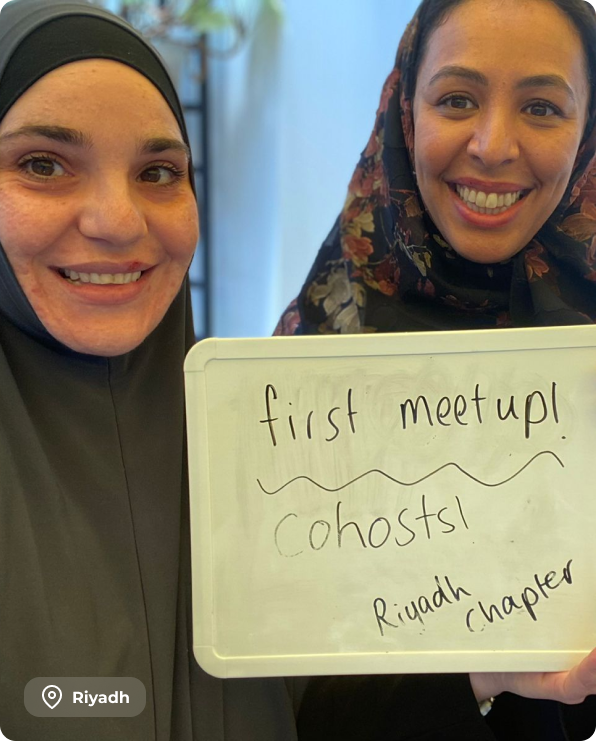 first meetup!
cohosts!
Riyadh
chapter
Riyadh